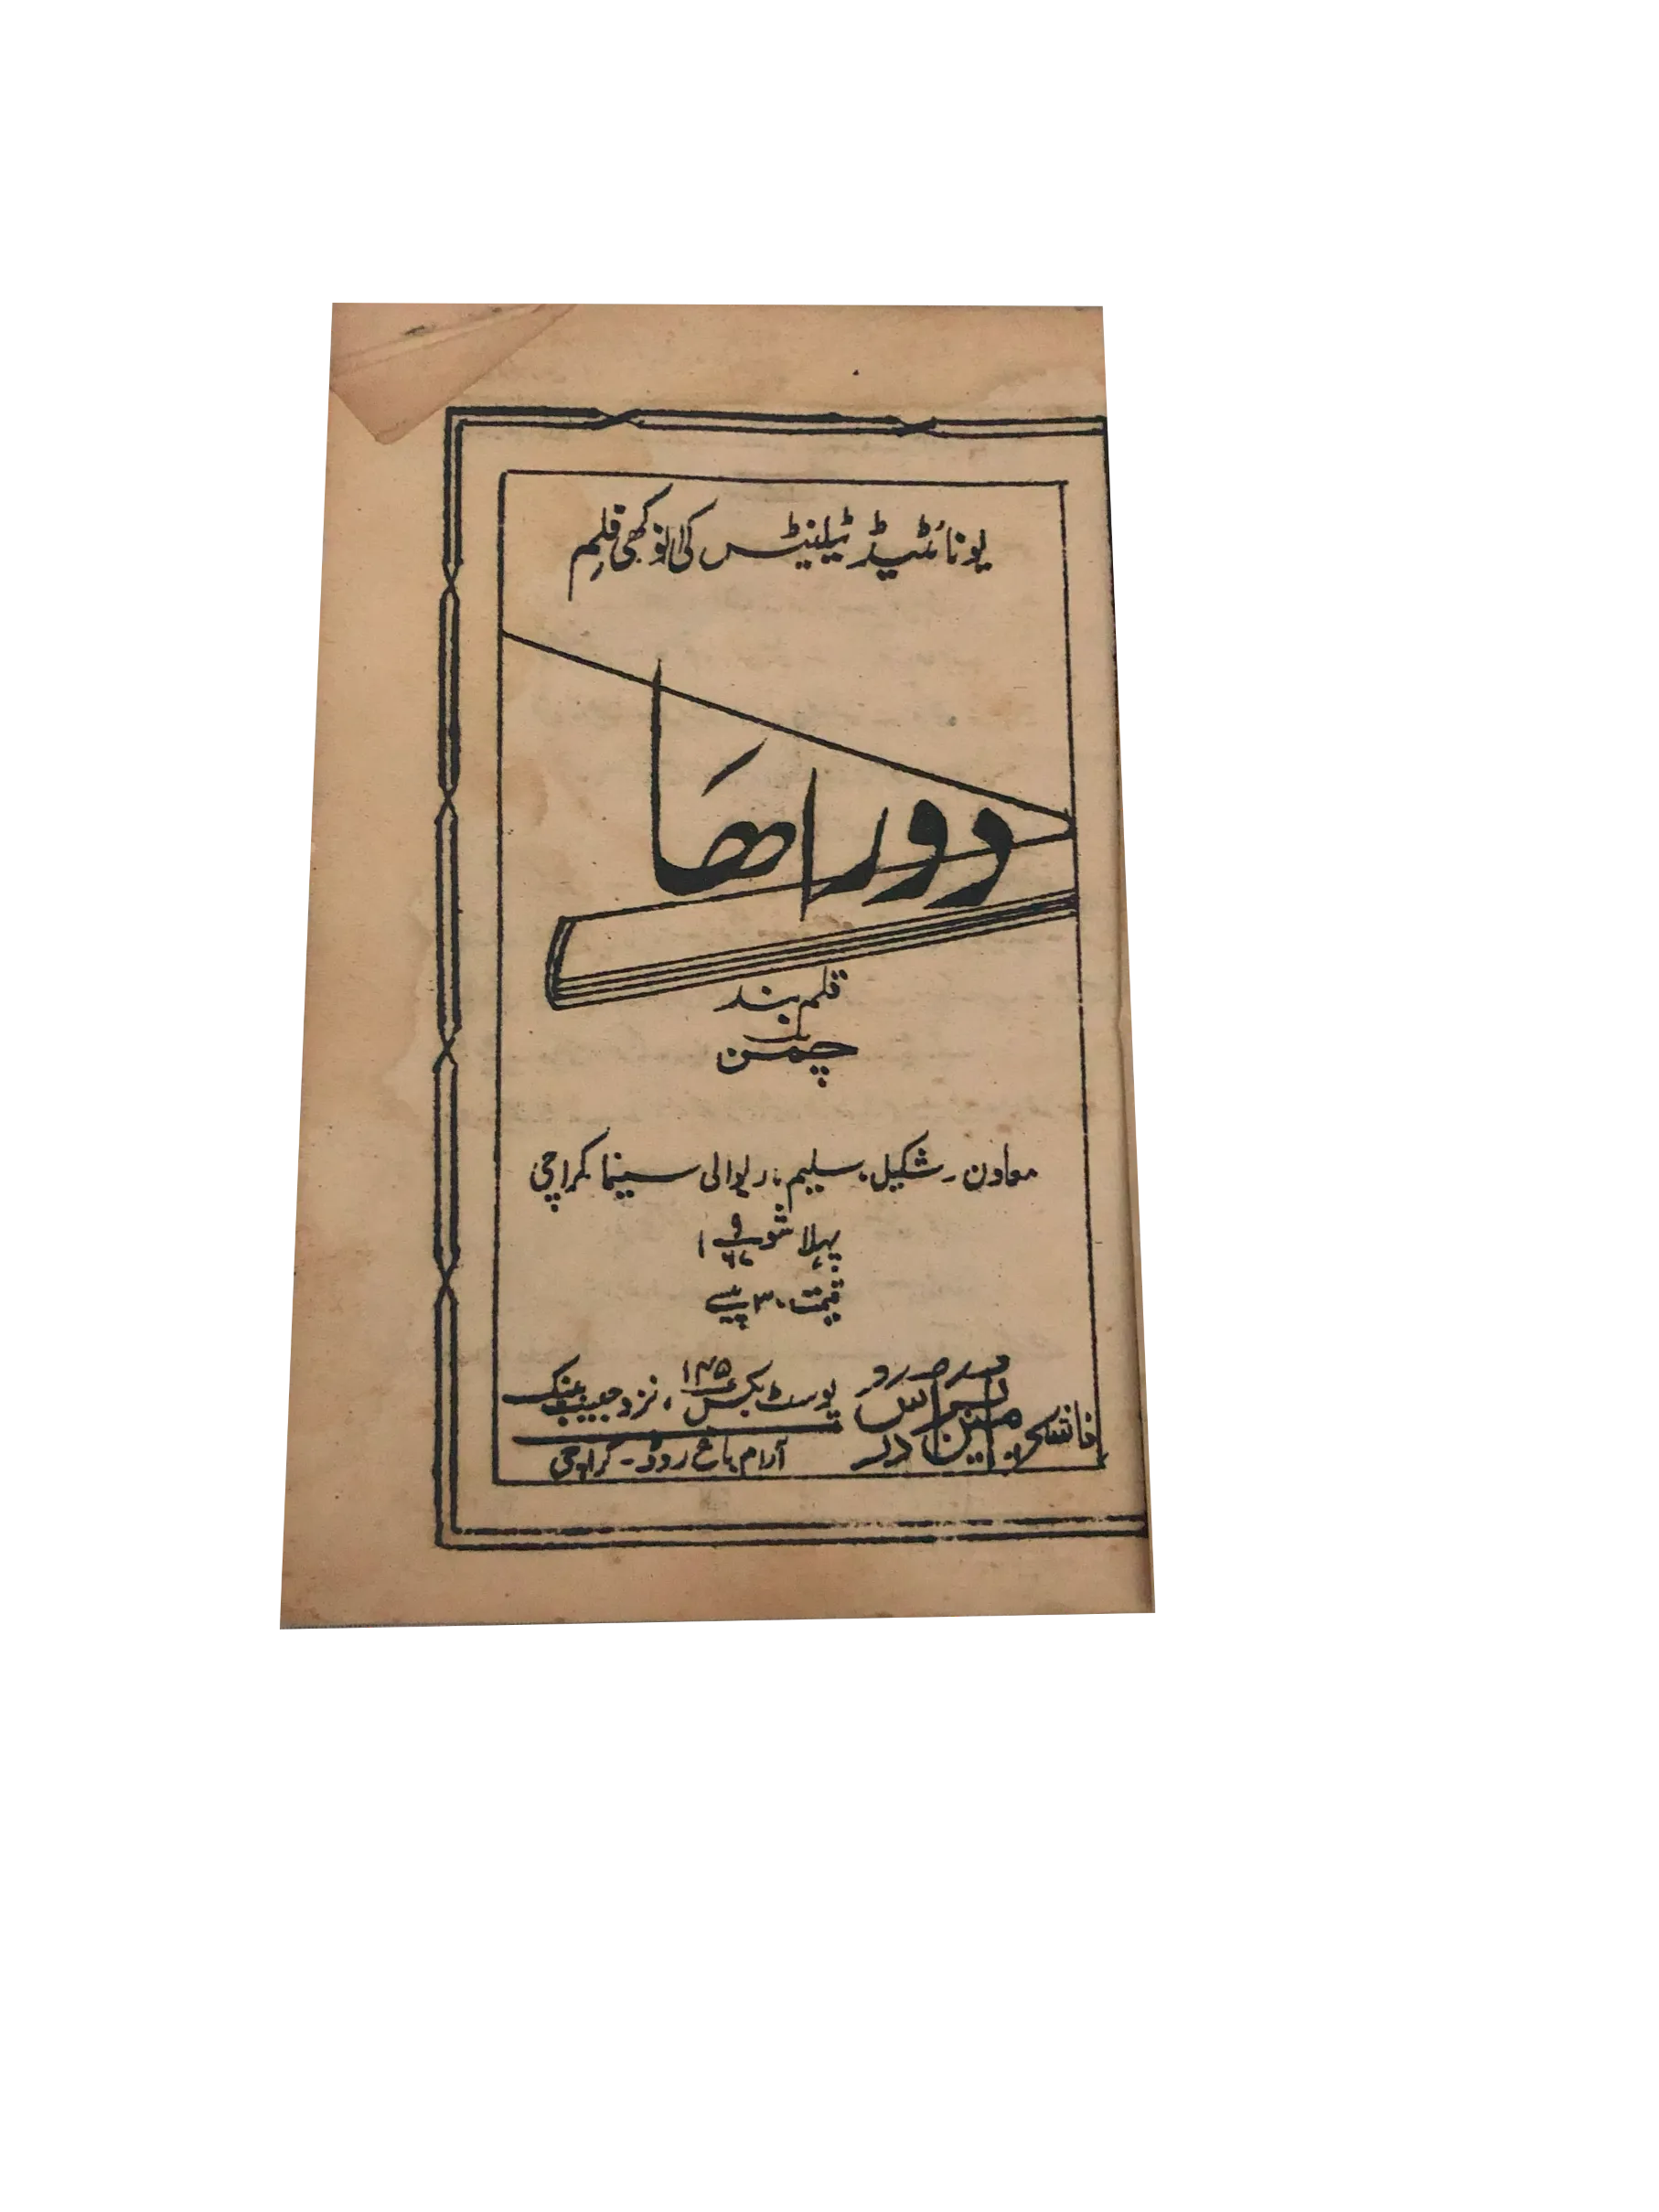 یونائٹیڈ ٹیلینٹس کی انوکھی فلم
دوراھا
قلم بند
چمن
معاون ۔ شکیل، سلیم، ریوالی سینما کراچی
پہلا شو ۶۷ء
قیمت ۳۰ پیسے
پوسٹ بکس ۱۴۵، نزد حبیب بینک
آرام باغ روڈ ۔ کراچی